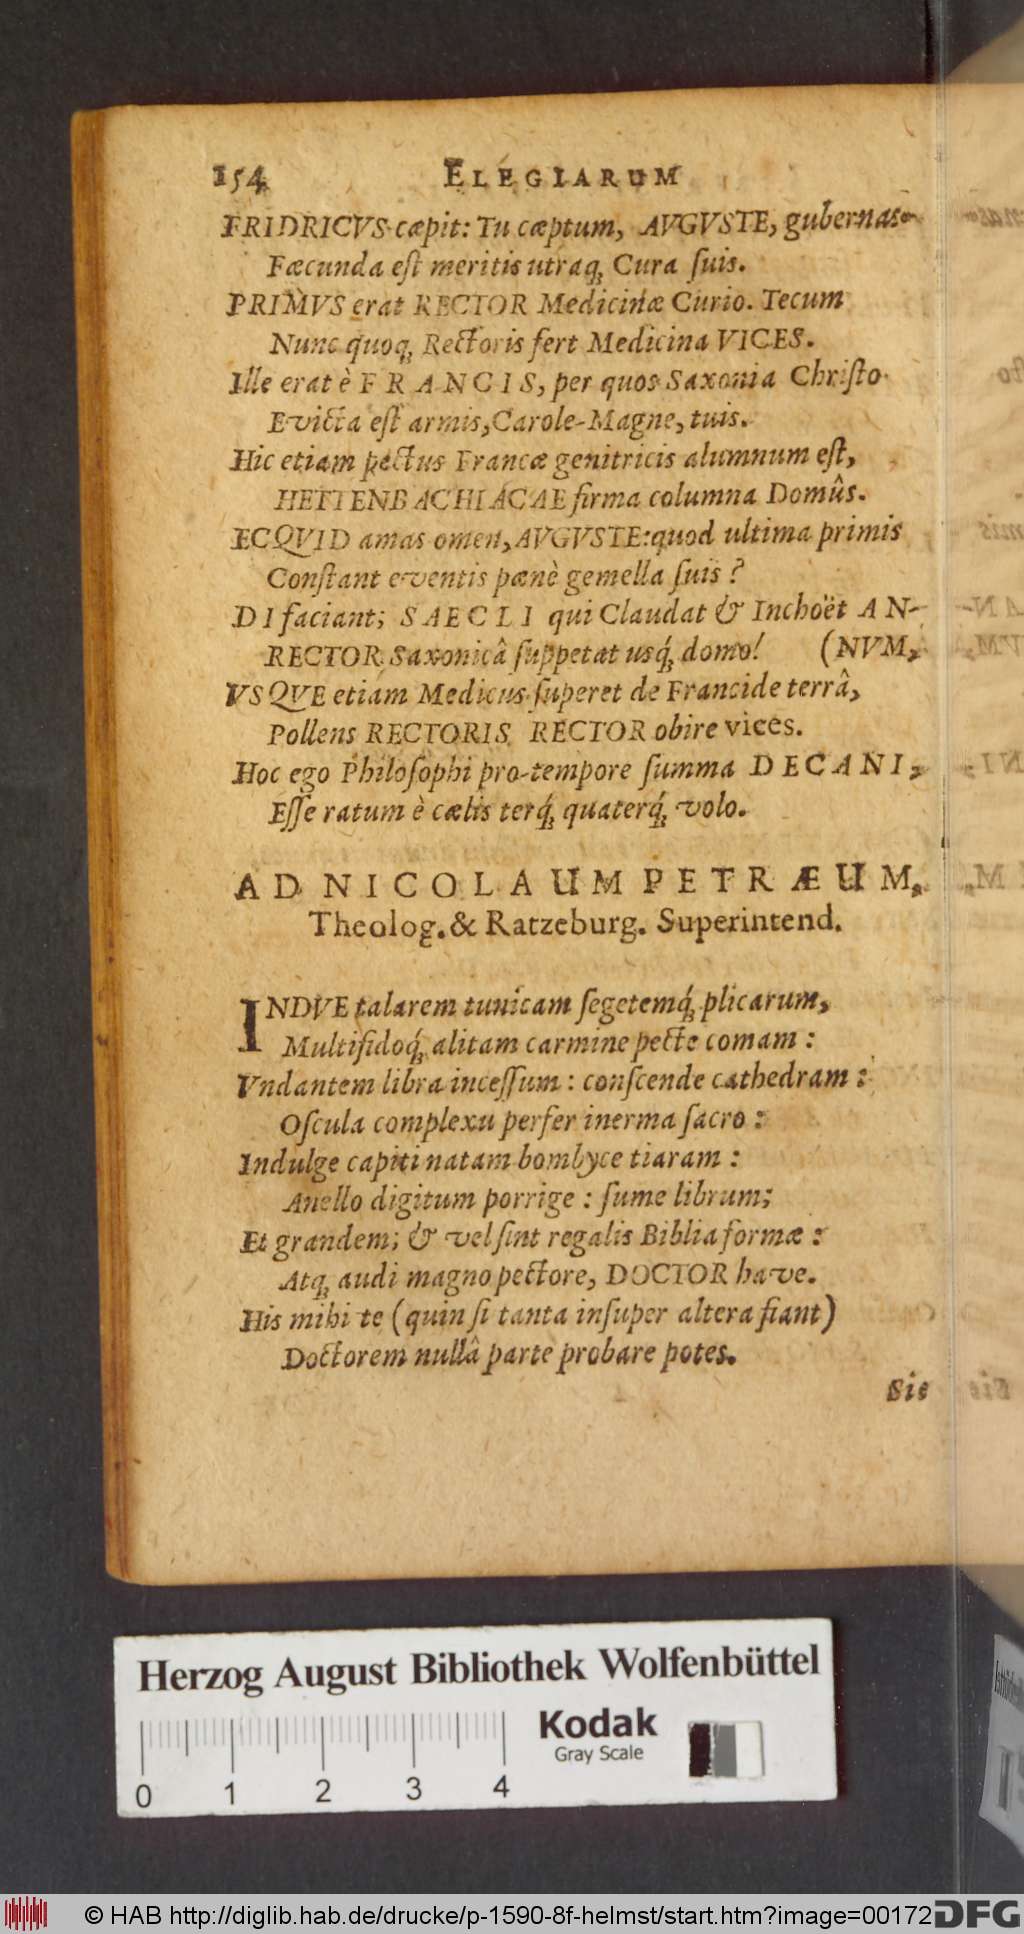 154 ELEGIARUM
FRIDRICVS cæpit: Tu cæptum, AVGVSTE, gubernas.
Fæcunda eſt meritis utraq; Cura ſuis.
PRIMVS erat RECTOR Medicinæ Curio. Tecum
Nunc quoq; Rectoris fert Medicina VICES.
Ille erat è FRANCIS, per quos Saxonia Chriſto
Evicta eſt armis, Carole-Magne, tuis.
Hic etiam pectus Francæ genitricis alumnum eſt,
HETTENBACHIACAE firma columna Domûs.
ECQVID amas omen, AVGVSTE: quod ultima primis
Conſtant eventis pænè gemella ſuis?
DI faciant; SAECLI qui Claudat & Inchoët AN-
RECTOR Saxonicâ ſuppetat usq́; domo! (NVM,
VSQVE etiam Medicus ſuperet de Francide terrâ,
Pollens RECTORIS RECTOR obire vices.
Hoc ego Philoſophi pro-tempore ſumma DECANI,
Eſſe ratum è cælis terq́; quaterq́; volo.
AD NICOLAUM PETRÆUM,
Theolog. & Ratzeburg. Superintend.
INDVE talarem tunicam ſegetemq́; plicarum,
Multifidoq́; alitam carmine pecte comam:
Vndantem libra inceſſum: conſcende cathedram:
Oſcula complexu perfer inerma ſacro:
Indulge capiti natam bombyce tiaram:
Anello digitum porrige: ſume librum;
Et grandem; & vel ſint regalis Biblia formæ:
Atq; audi magno pectore, DOCTOR have.
His mihi te (quin ſi tanta inſuper altera fiant)
Doctorem nullâ parte probare potes.
Sie
Herzog August Bibliothek Wolfenbüttel
Kodak
Gray Scale
0 1 2 3 4
© HAB http://diglib.hab.de/drucke/p-1590-8f-helmst/start.htm?image=00172
DFG